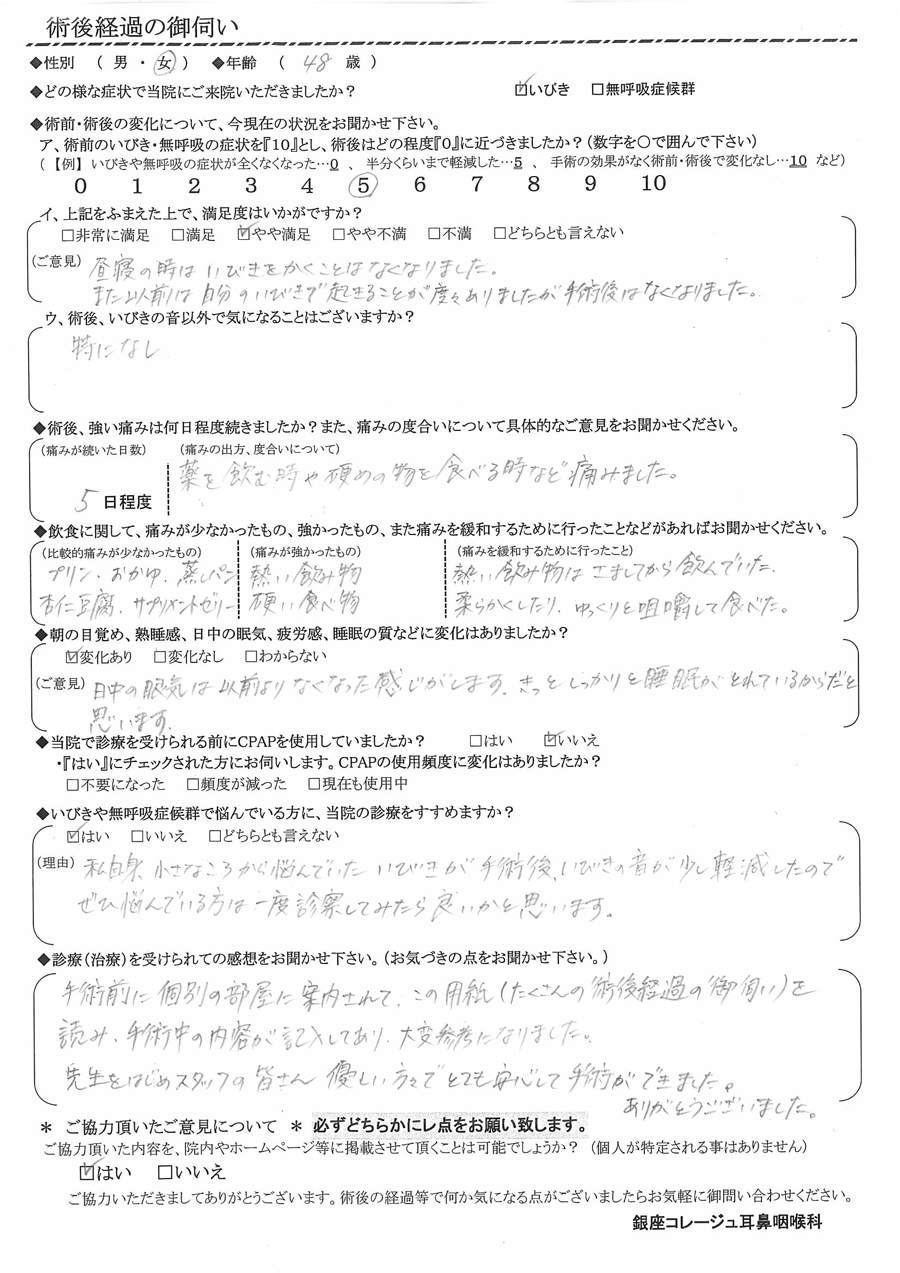 術後経過の御伺い
◆性別 ( 男 ・ 女 ) ◆年齢 ( 48 歳 )
◆どの様な症状で当院にご来院いただきましたか? ☑いびき □無呼吸症候群
◆術前・術後の変化について、今現在の状況をお聞かせ下さい。
ア、術前のいびき・無呼吸の症状を『10』とし、術後はどの程度『0』に近づきましたか?(数字を〇で囲んで下さい)
(【例】いびきや無呼吸の症状が全くなくなった…0 、 半分くらいまで軽減した…5 、 手術の効果がなく術前・術後で変化なし…10 など)
0 1 2 3 4 5 6 7 8 9 10
イ、上記をふまえた上で、満足度はいかがですか?
□非常に満足 □満足 ☑やや満足 □やや不満 □不満 □どちらとも言えない
(ご意見) 昼寝の時は いびきをかくことはなくなりました。
また以前は 自分のいびきで起きることが度々ありましたが手術後はなくなりました。
ウ、術後、いびきの音以外で気になることはございますか?
特になし
◆術後、強い痛みは何日程度続きましたか?また、痛みの度合いについて具体的なご意見をお聞かせください。
(痛みが続いた日数) (痛みの出方、度合いについて)
薬を飲む時や硬めの物を食べる時など痛みました。
5 日程度
◆飲食に関して、痛みが少なかったもの、強かったもの、また痛みを緩和するために行ったことなどがあればお聞かせください。
(比較的痛みが少なかったもの) (痛みが強かったもの) (痛みを緩和するために行ったこと)
プリン・おかゆ、蒸しパン 熱い飲み物 熱い飲み物は さましてから飲んでいた。
杏仁豆腐、サプリメントゼリー 硬い食べ物 柔らかくしたり、ゆっくりと咀嚼して食べた。
◆朝の目覚め、熟睡感、日中の眠気、疲労感、睡眠の質などに変化はありましたか?
☑変化あり □変化なし □わからない
(ご意見) 日中の眠気は以前よりなくなった感じがします。きっとしっかりと睡眠がとれているからだと
思います。
◆当院で診療を受けられる前にCPAPを使用していましたか? □はい ☑いいえ
・『はい』にチェックされた方にお伺いします。CPAPの使用頻度に変化はありましたか?
□不要になった □頻度が減った □現在も使用中
◆いびきや無呼吸症候群で悩んでいる方に、当院の診療をすすめますか?
☑はい □いいえ □どちらとも言えない
(理由) 私自身 小さなころから悩んでいた いびきが 手術後、いびきの音が少し軽減したので
ぜひ悩んでいる方は一度診察してみたら良いかと思います。
◆診療(治療)を受けられての感想をお聞かせ下さい。(お気づきの点をお聞かせ下さい。)
手術前に個別の部屋に案内されて、この用紙(たくさんの術後経過の御伺い)を
読み、手術中の内容が記入してあり、大変参考になりました。
先生をはじめスタッフの皆さん 優しい方々でとても安心して手術ができました。
ありがとうございました。
* ご協力頂いたご意見について * 必ずどちらかにレ点をお願い致します。
ご協力頂いた内容を、院内やホームページ等に掲載させて頂くことは可能でしょうか? (個人が特定される事はありません)
☑はい □いいえ
ご協力いただきましてありがとうございます。術後の経過等で何か気になる点がございましたらお気軽に御問い合わせください。
銀座コレージュ耳鼻咽喉科